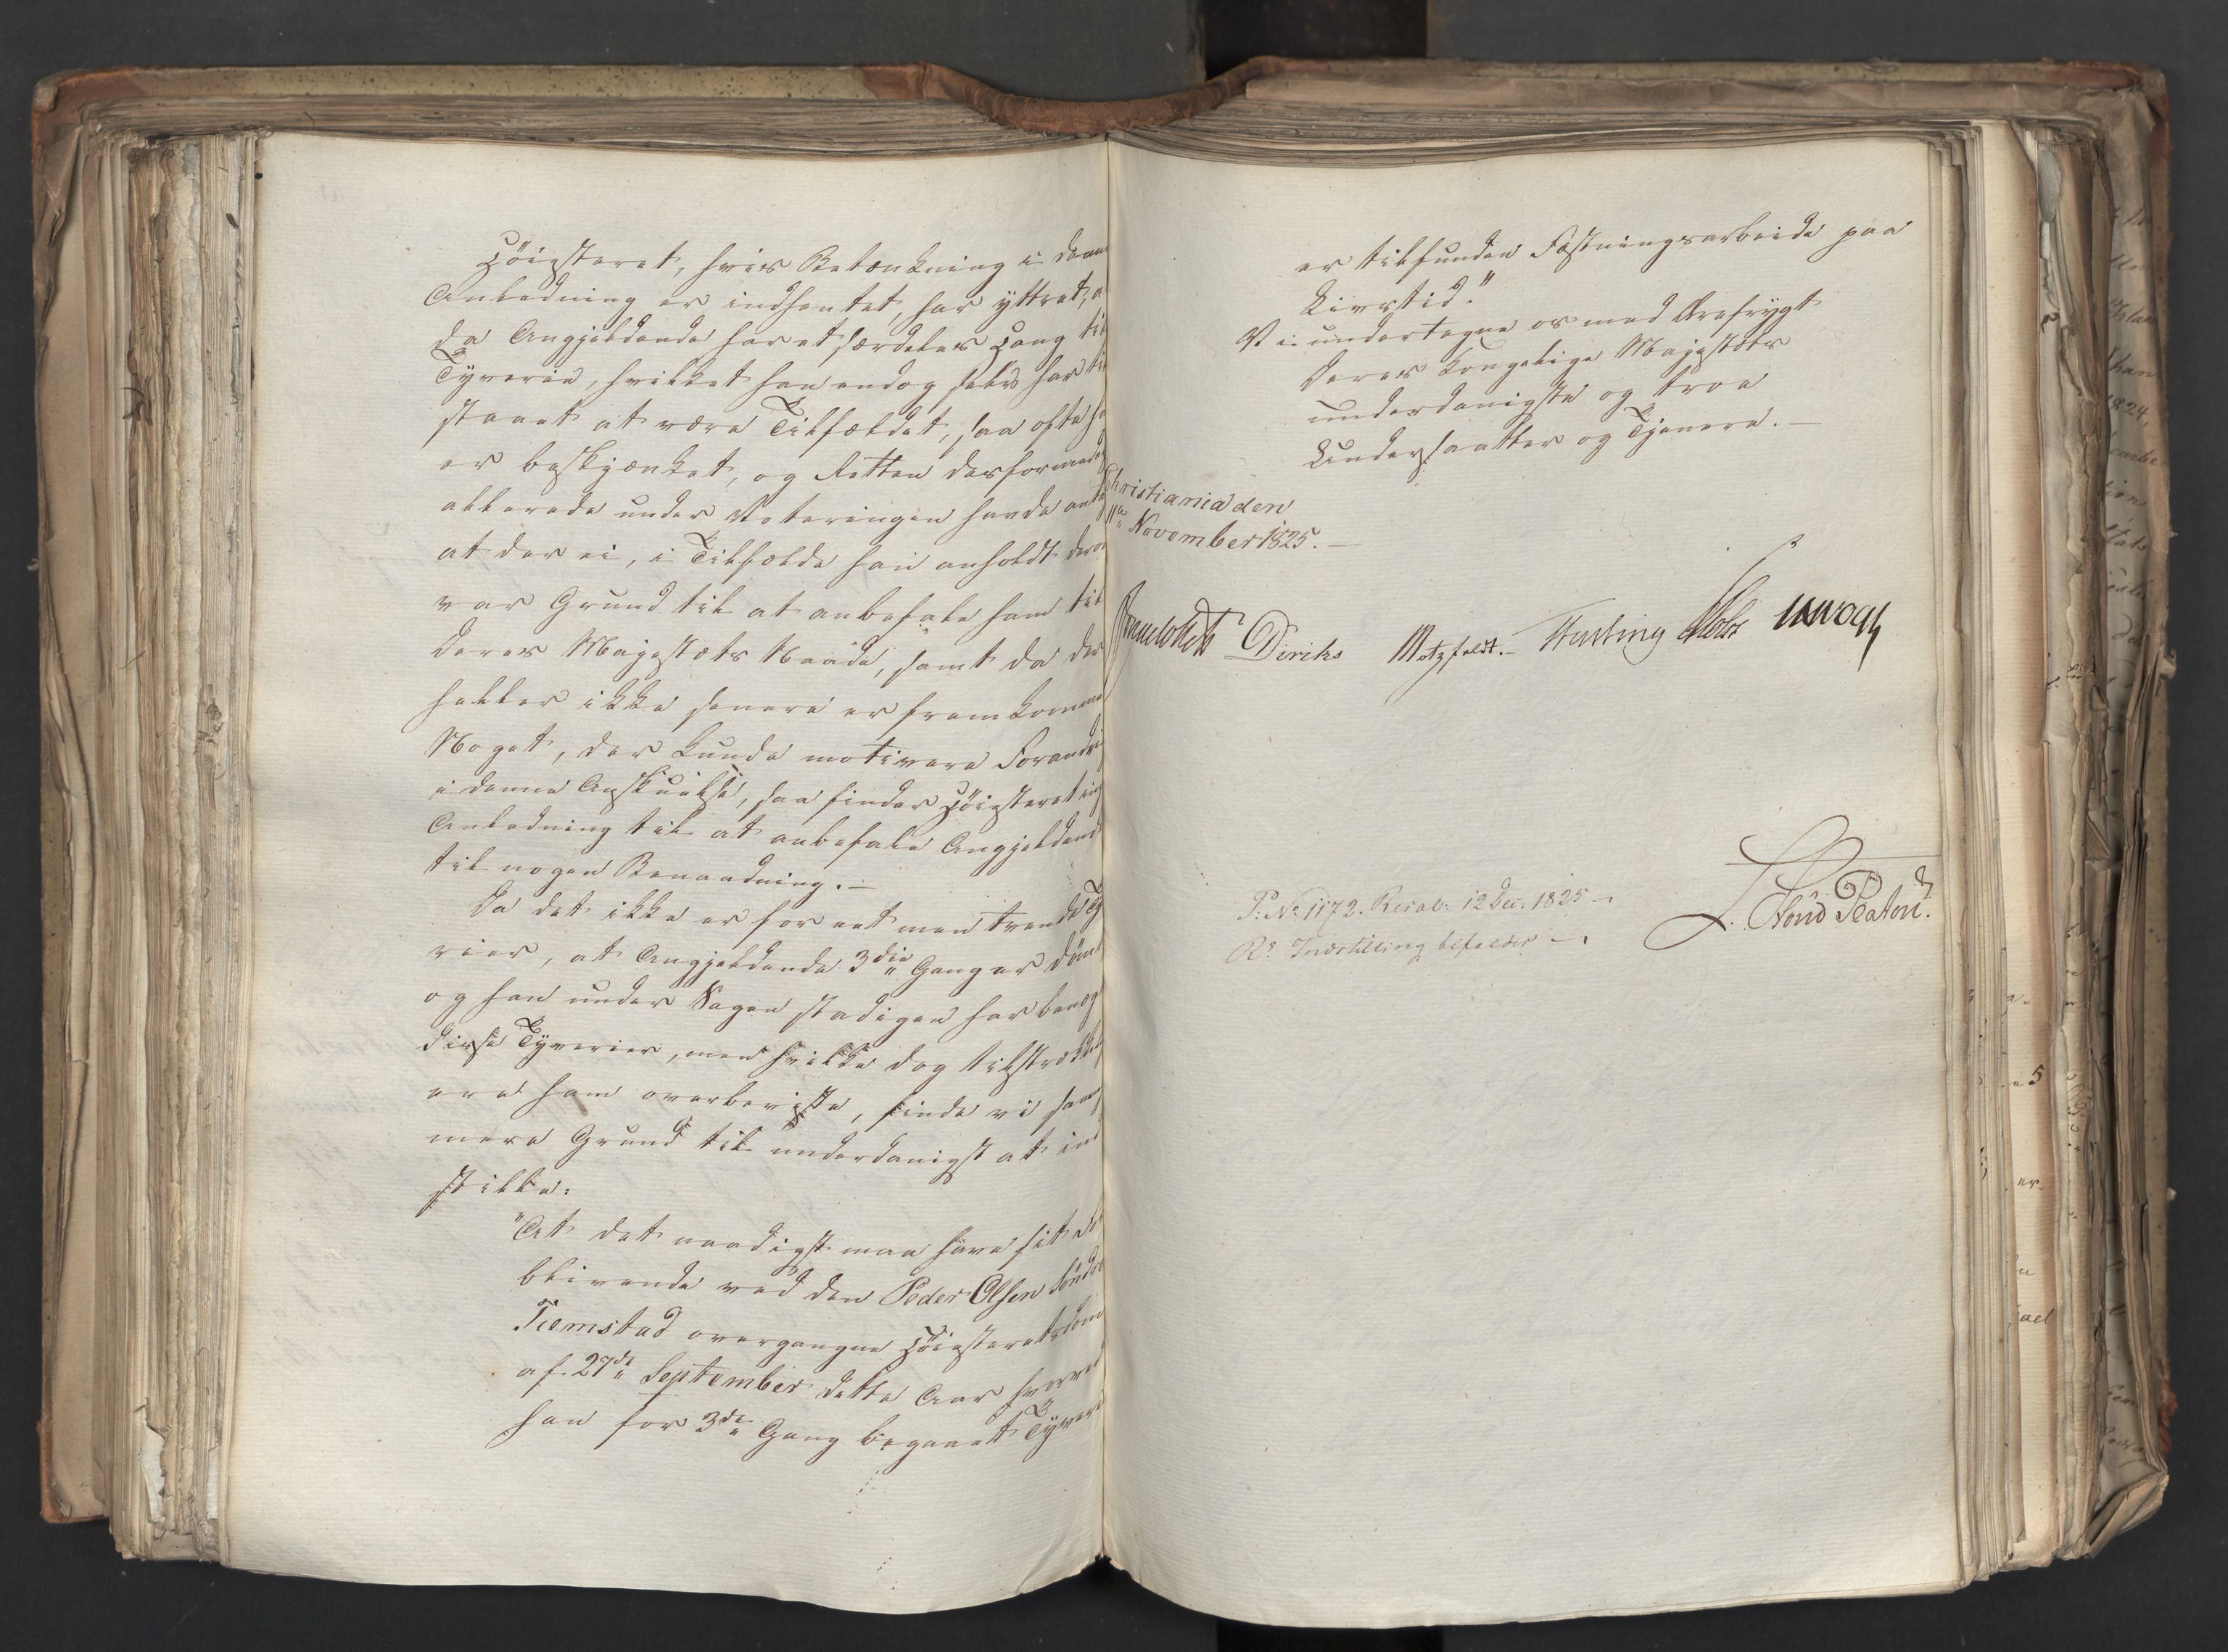 Höiesteret, hvis Betænkning i denne
Anledning er indhentet, har yttret, a
da Angjeldende har et særdeles Hang til
Tyverie, hvilket han endog selv har til
staaet at være Tilfældet, saa ofte ha
er beskjænket, og Retten desformede
allerede under Voteringen havde antag
at der ei, i Tilfælde han anholdt derom
var Grund til at anbefale ham til
Deres Majestæts Naade, samt da der
heller ikke senere er fremkomme
Noget, der kunde motivere Forandri
i denne Anskuelse, saa finder Höiesteret ing
Anledning til at anbefale Angjeldende
til nogen Benaadning. —
Da det ikke er for eet men tvende Ty
rier, at Angjeldende 3die Gang er döm
og han under Sagen stadigen har benæg
disse Tyverier, men hvilke dog tilstrækkel
ere ham overbeviste, finde vi saa
mere Grund til underdanigst at ind
stille:
"At det naadigst maa have sit
blivende ved den Peder Olsen Söndre
Tiemstad overgangne Höiesteretsdom
af 27de September dette Aar hvorved
han for 3de Gang begaaet Tyveri
er tilfunden Fæstningsarbeide paa
Livstid."
Vi undertegne os med Ærefrygt
Deres Kongelige Majestæts
underdanigste og troe
Undersaatter og Tjenere. —
Christiania den
11te November 1825. —
Diriks Motzfeldt. —
P: No 1172. Resol: 12 Dec: 1825 —
Rs Indstilling bifaldes —